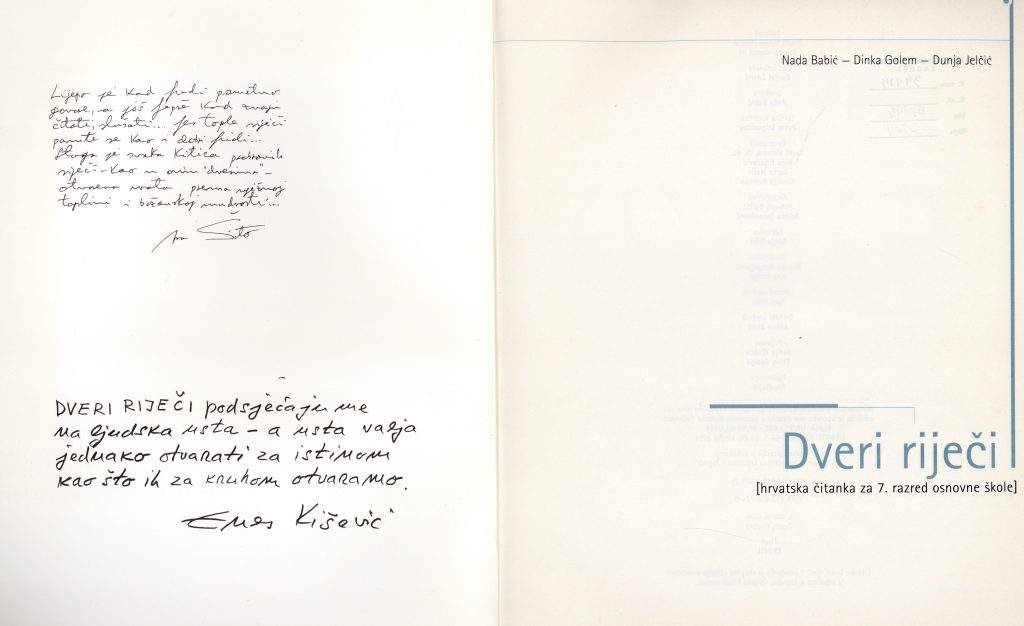 Lijepo je kad ljudi pametno
govore, a još ljepše kad znaju
čitati, slušati... Jer tople riječi
pamte se kao i dobri ljudi...
Stoga je svaka kitica probranih
riječi - kao u ovim "dverima" -
otvorena vrata prema nježnoj
toplini i božanskoj mudrosti...
DVERI RIJEČI podsjećaju me
na ljudska usta – a usta valja
jednako otvarati za istinom
kao što ih za kruhom otvaramo.
Enes Kišević
Nada Babić – Dinka Golem – Dunja Jelčić
Dveri riječi
[hrvatska čitanka za 7. razred osnovne škole]